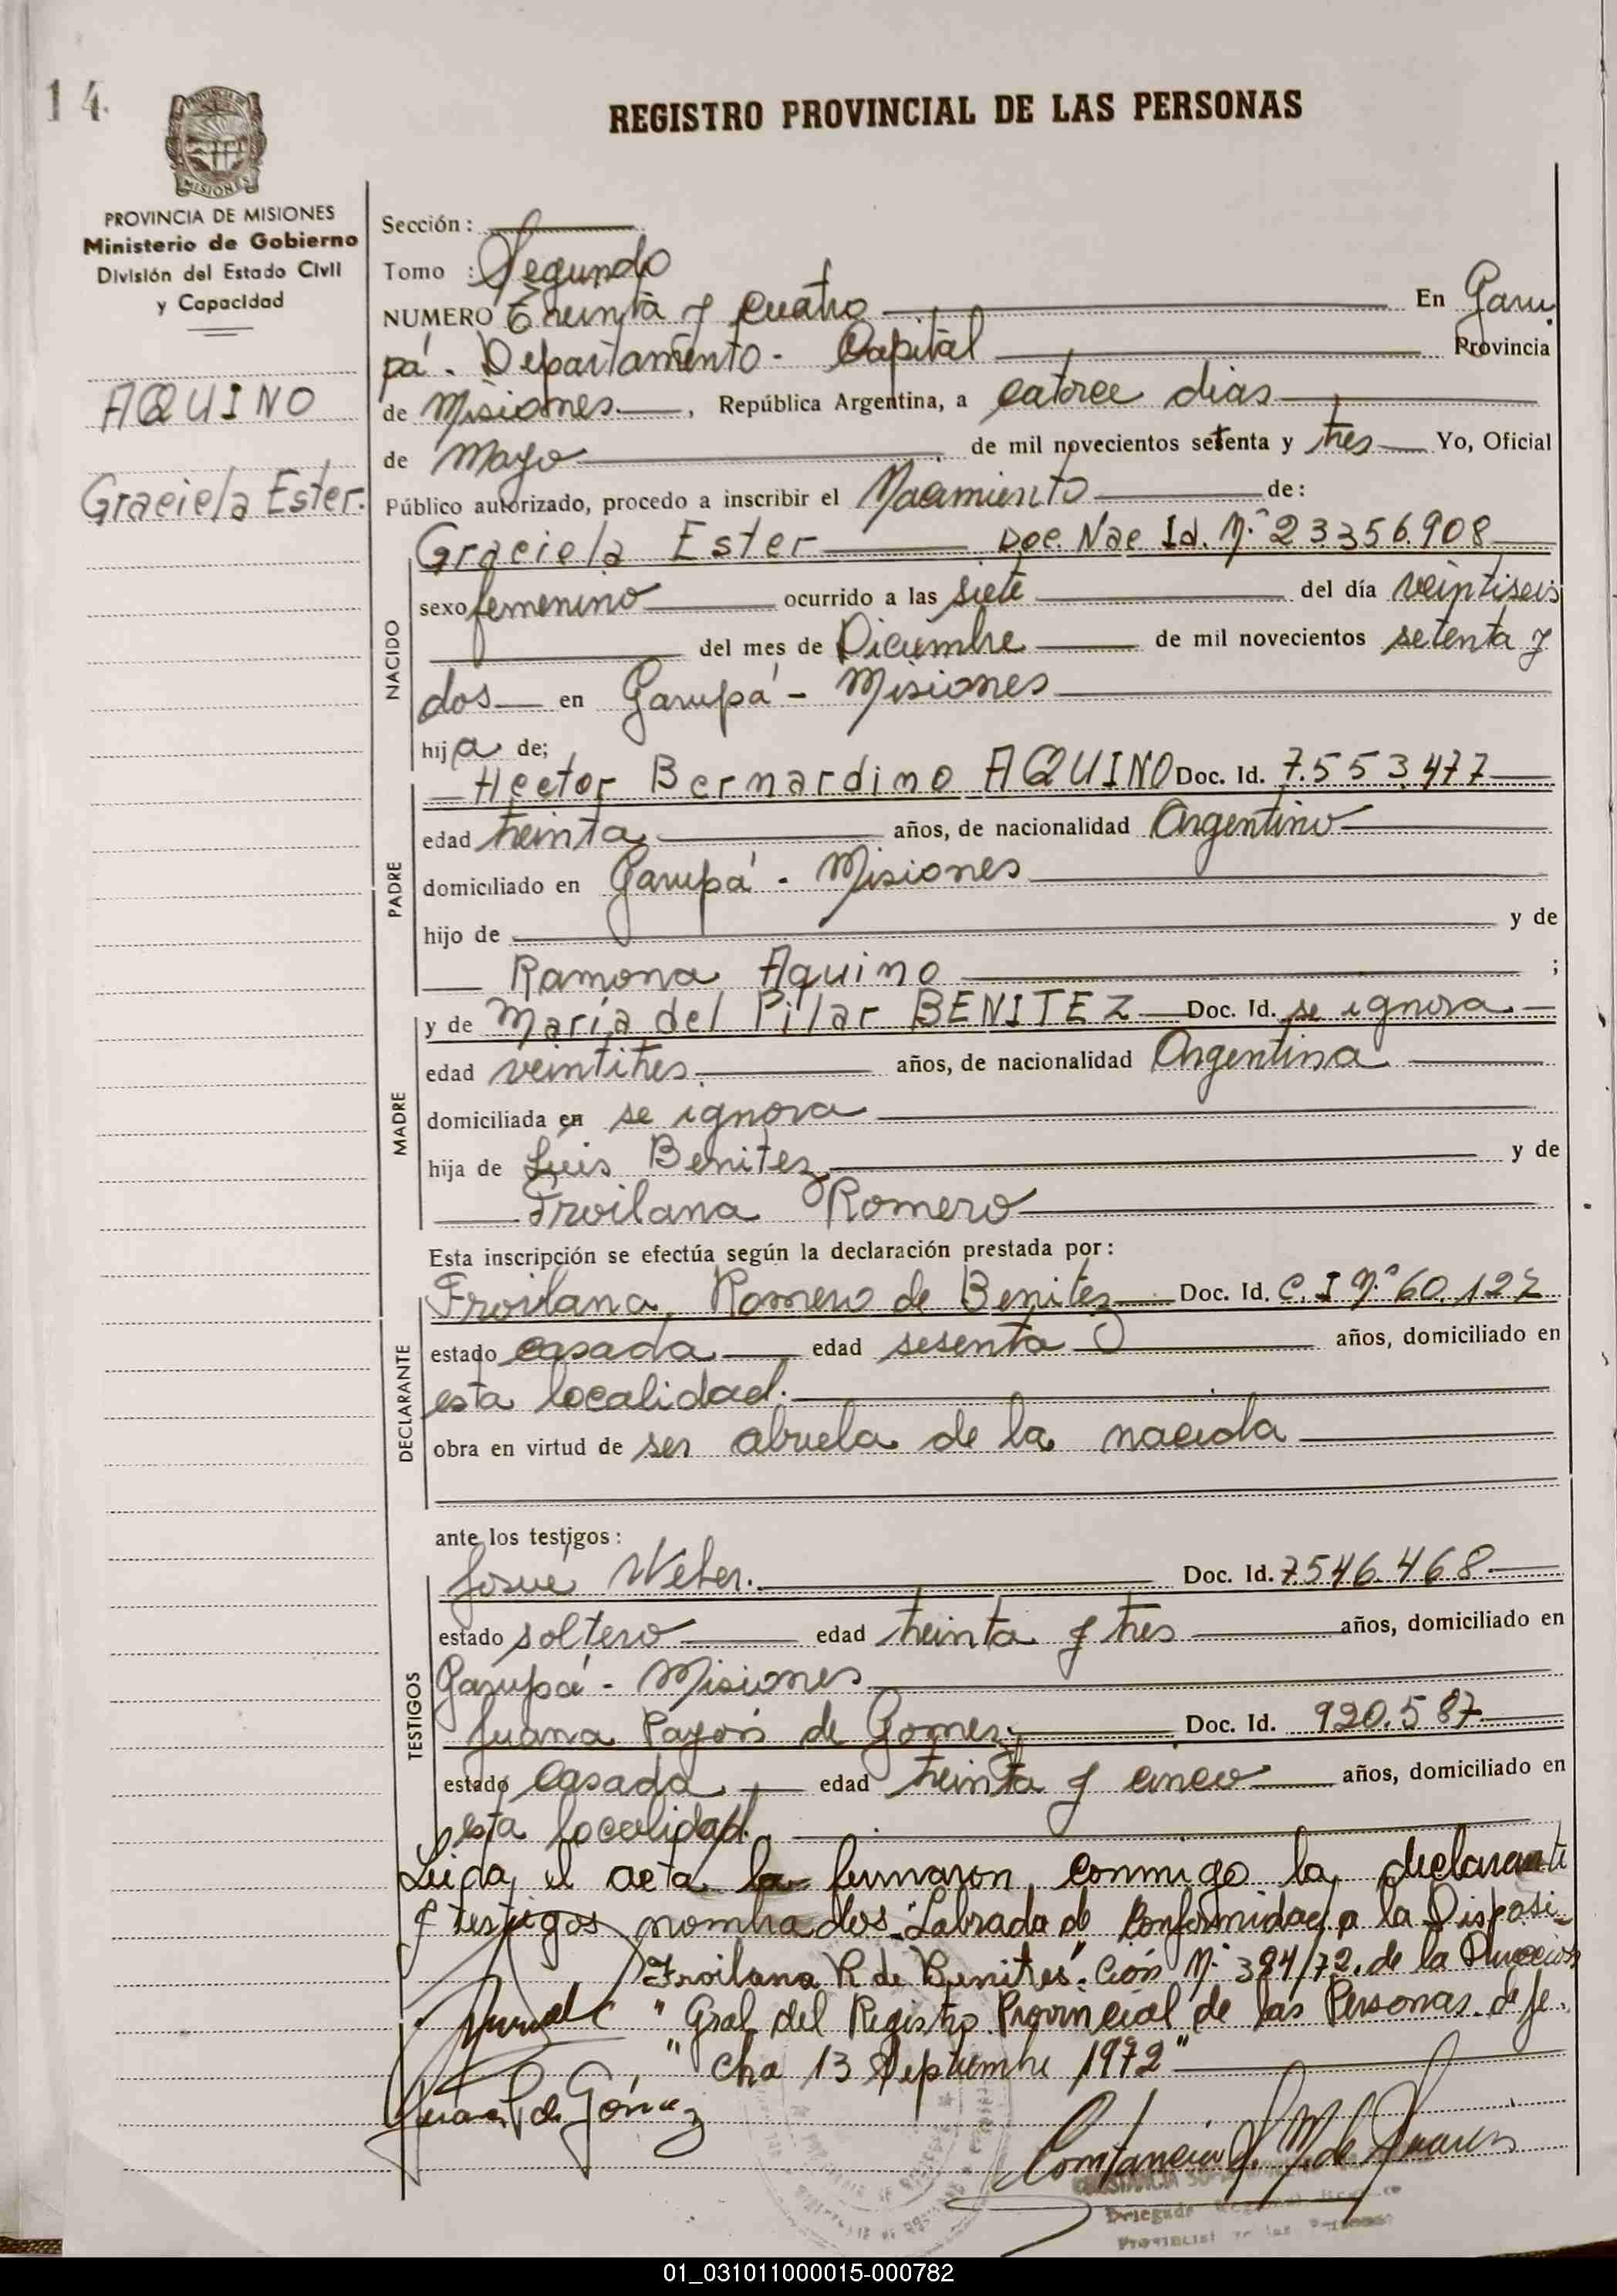 14
REGISTRO PROVINCIAL DE LAS PERSONAS
MISIONES
PROVINCIA DE MISIONES
Ministerio de Gobierno
División del Estado Civil
y Capacidad
AQUINO
Graciela Ester.
Sección :
Tomo : Segundo
NUMERO Treinta y cuatro En Garu
pá . Departamento - Capital Provincia
de Misiones , República Argentina, a catorce dias
de Mayo de mil novecientos setenta y tres Yo, Oficial
Público autorizado, procedo a inscribir el Nacimiento de:
Graciela Ester Doc. Nac Id. N.° 23356.908
NACIDO
sexo femenino ocurrido a las siete del día veintiseis
del mes de Diciembre de mil novecientos setenta y
dos en Garupá - Misiones
hija de;
PADRE
Hector Bernardino AQUINO Doc. Id. 7.553.477
edad treinta años, de nacionalidad Argentino
domiciliado en Garupá - Misiones
hijo de y de
Ramona Aquino ;
MADRE
y de María del Pilar BENITEZ Doc. Id. se ignora
edad veintitres años, de nacionalidad Argentina
domiciliada en se ignora
hija de Luis Benitez y de
Froilana Romero
Esta inscripción se efectúa según la declaración prestada por :
DECLARANTE
Froilana Romero de Benitez Doc. Id. C. I N.° 60.127
estado casada edad sesenta años, domiciliado en
esta localidad.
obra en virtud de ser abuela de la nacida
ante los testigos :
TESTIGOS
Josué Weber. Doc. Id. 7.546.468
estado soltero edad treinta y tres años, domiciliado en
Garupá - Misiones
Juana Payón de Gomez Doc. Id. 920.587
estado casada edad treinta y cinco años, domiciliado en
esta localidad.
Leida el acta la firmaron conmigo la declarante
y testigos nombrados "Labrada de conformidad a la Disposi-
Froilana R de Benites "ción N.° 384/72. de la Dirección
"Gral del Registro Provincial de las Personas de fe.
"cha 13 Septiembre 1972"
Juana P. de Gómez
Constancia S. M. de Suarez
Delegada
Provincial de las Personas
01_031011000015-000782